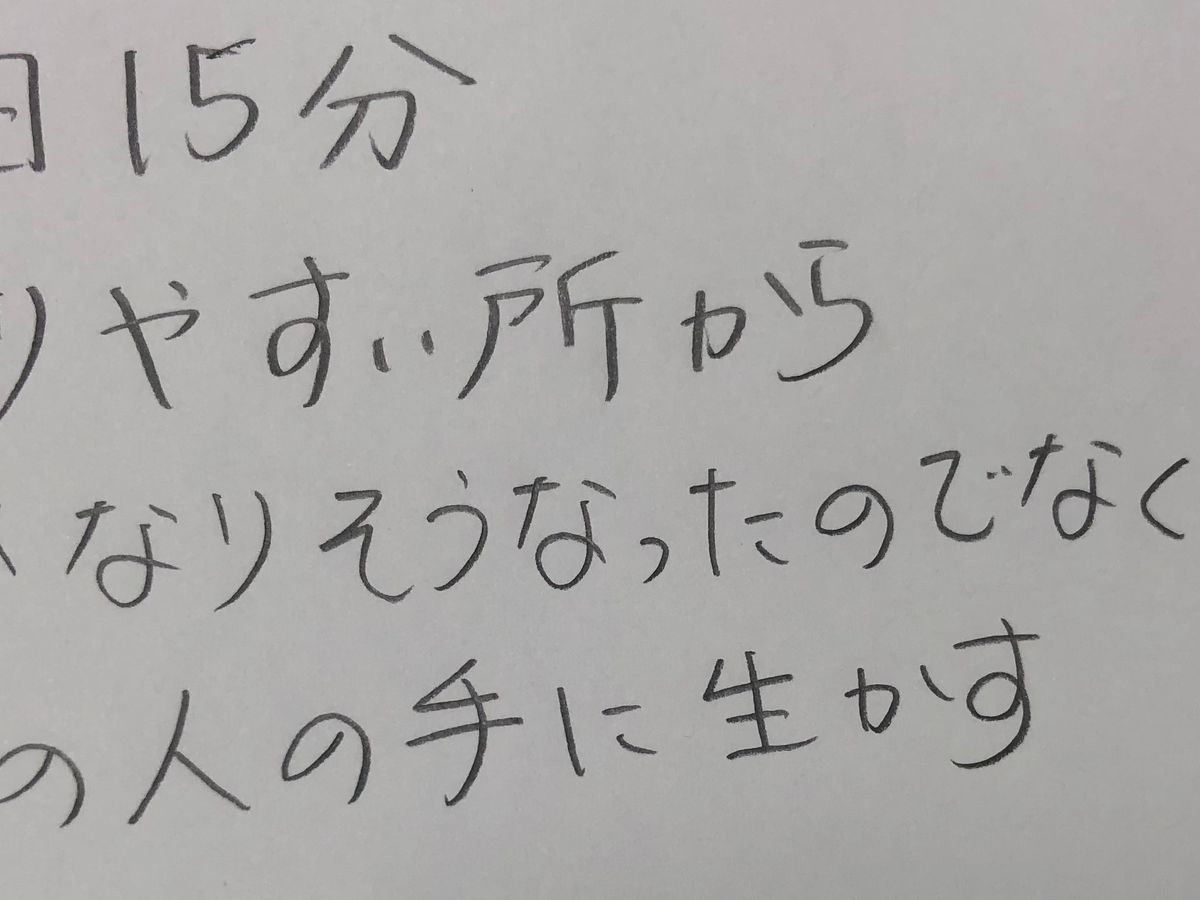 日15分
りやすい所から
くなりそうなったのでなく
の人の手に生かす